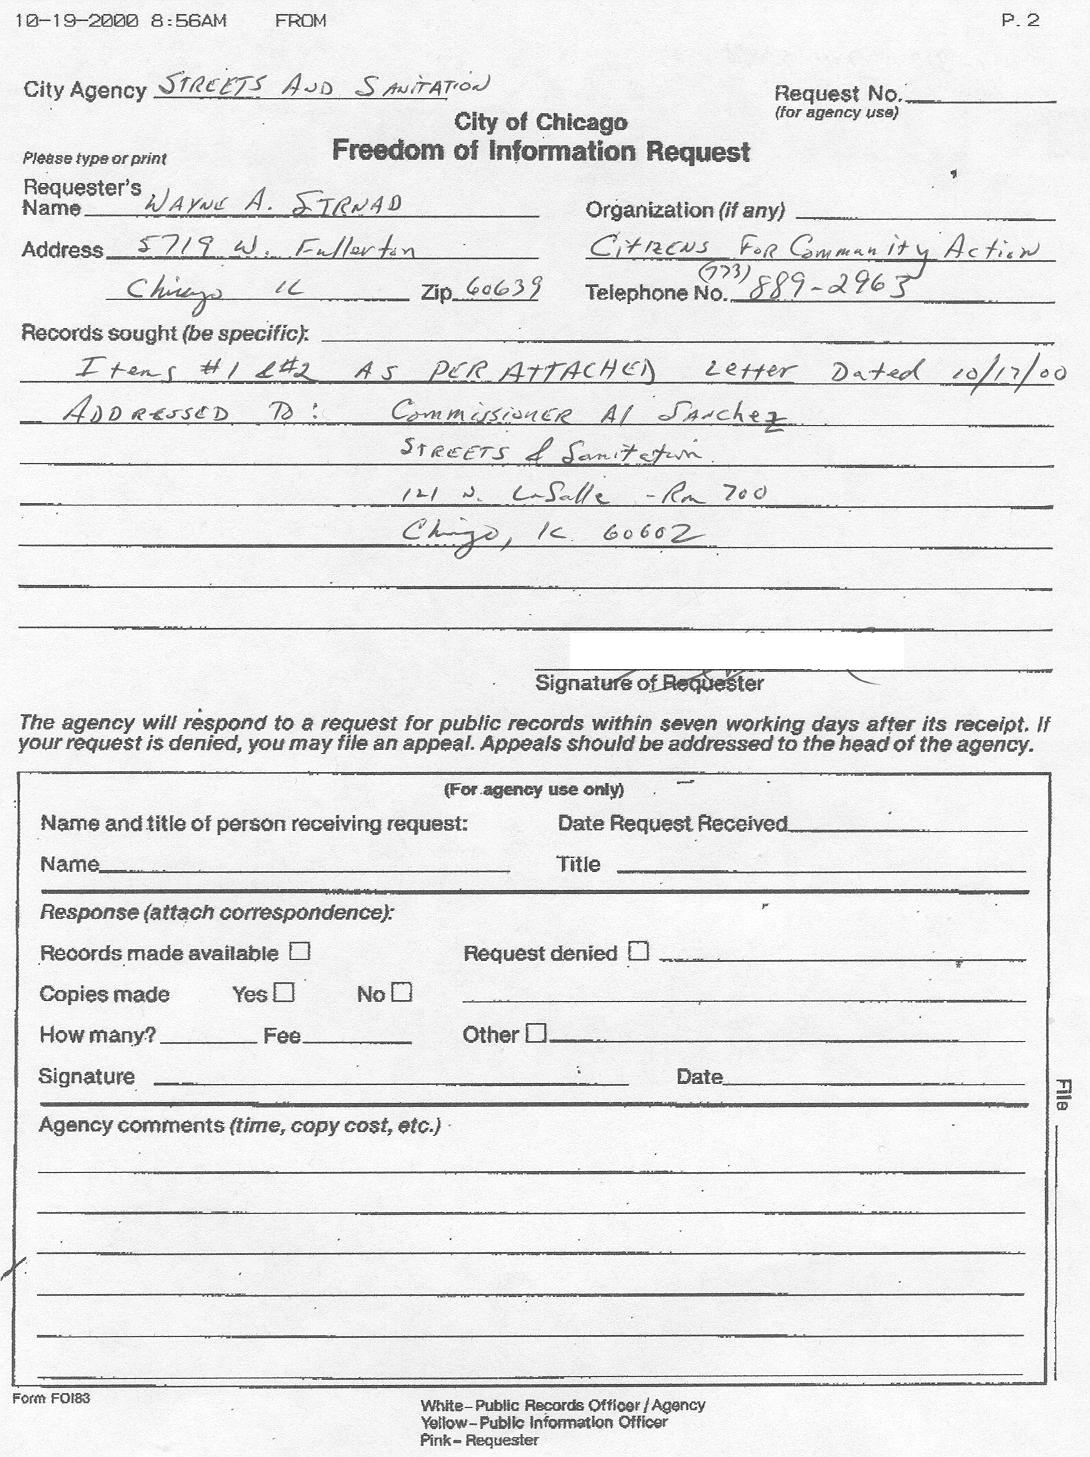 10-19-2000 8:56AM FROM P.2
City Agency STREETS AND SANITATION Request No.
(for agency use)
City of Chicago
Freedom of Information Request
Please type or print
Requester's
Name WAYNE A. STRNAD Organization (if any)
Address 5719 W. Fullerton CITIZENS FOR Community Action
Chicago IL Zip 60639 Telephone No. (773) 889-2963
Records sought (be specific):
Items #1 & #2 AS PER ATTACHED Letter Dated 10/17/00
ADDRESSED TO: COMMISSIONER Al SANchez
STREETS & Sanitation
121 N. LaSalle - Rm 700
Chicago, IL 60602
Signature of Requester
The agency will respond to a request for public records within seven working days after its receipt. If
your request is denied, you may file an appeal. Appeals should be addressed to the head of the agency.
(For agency use only)
Name and title of person receiving request: Date Request Received
Name Title
Response (attach correspondence):
Records made available Request denied
Copies made Yes No
How many? Fee Other
Signature Date
File
Agency comments (time, copy cost, etc.)
Form FOI83
White–Public Records Officer/Agency
Yellow–Public Information Officer
Pink–Requester